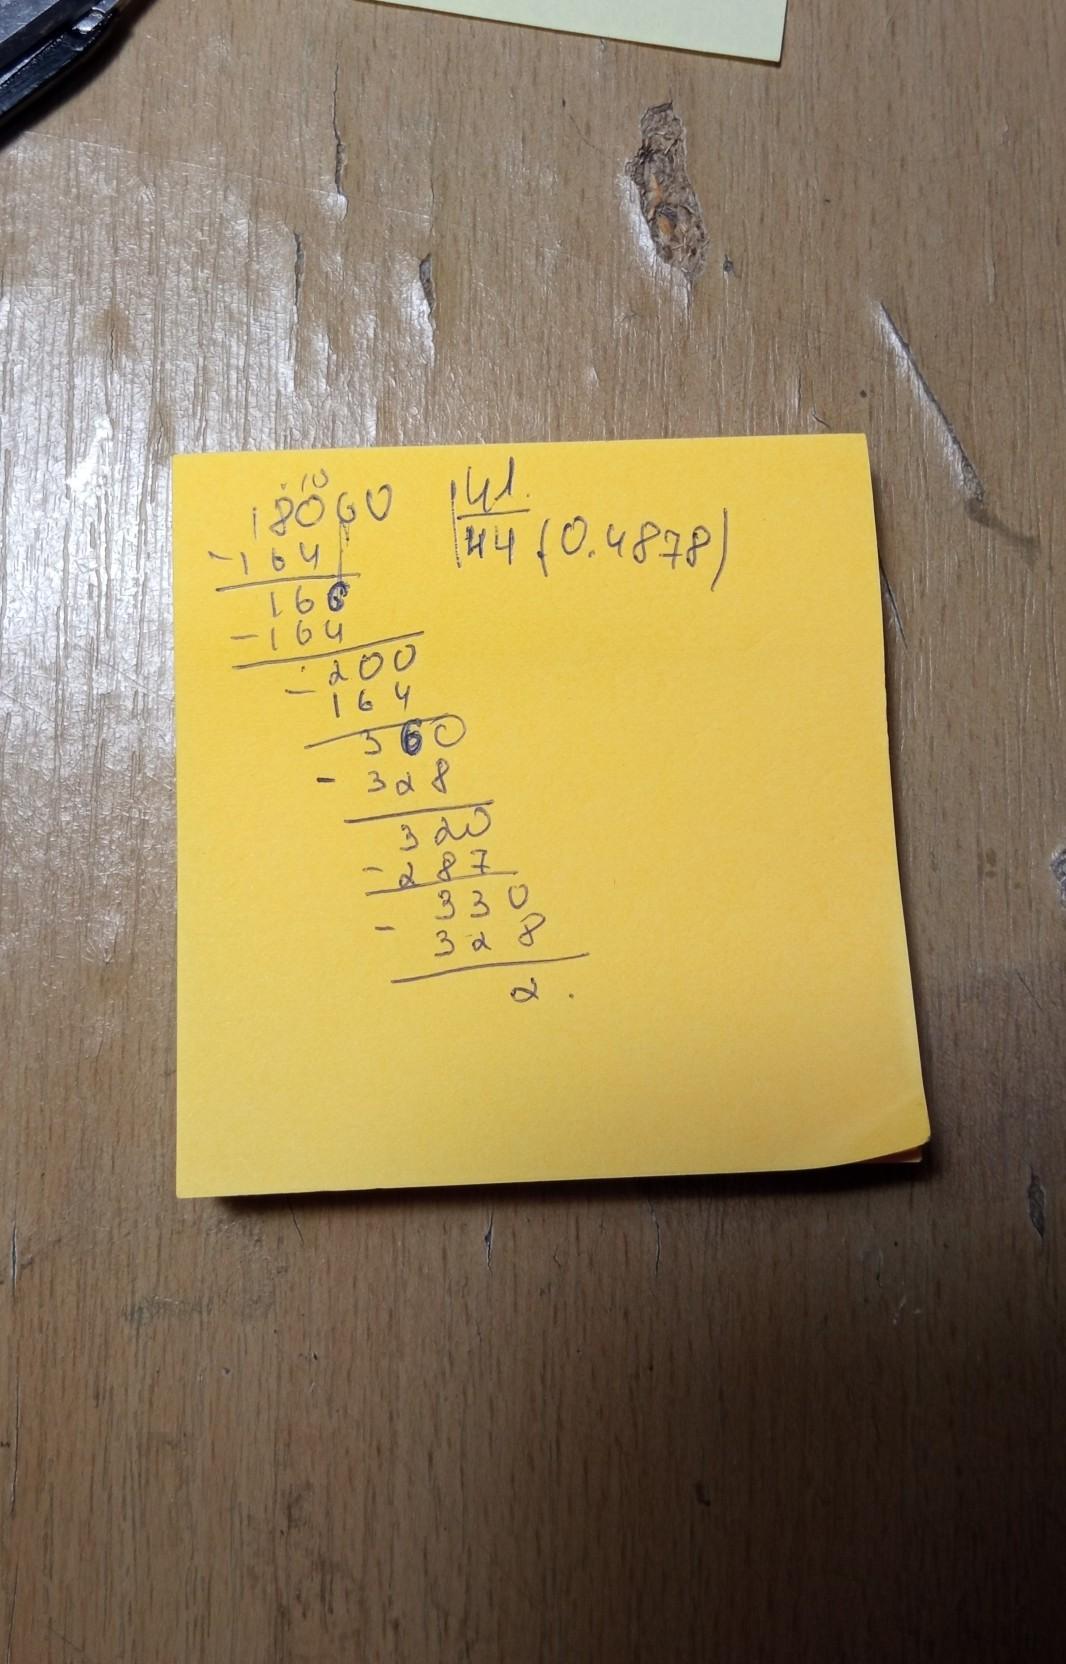 10
18060 41
-164 44(0.4878)
166
-164
-200
164
360
- 328
320
- 287
- 330
328
2.